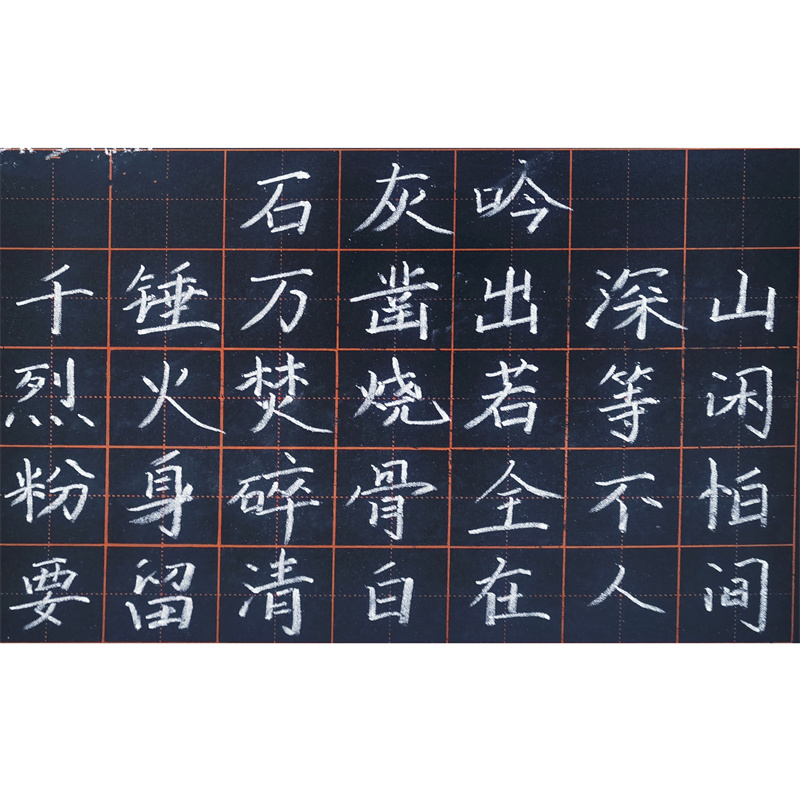 石灰吟
千锤万凿出深山
烈火焚烧若等闲
粉身碎骨全不怕
要留清白在人间